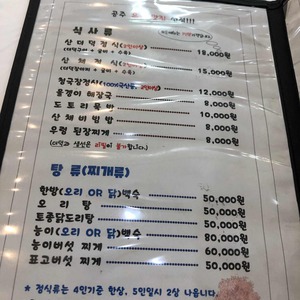 공주
식 사 류
산더덕정식(2인이상) 18,000원
산 채 정 식 15,000원
청국장정식(100%국산콩, 2인이상) 12,000원
올갱이 해장국 8,000원
도토리묵밥 10,000원
산채비빔밥 8,000원
우렁 된장찌개 8,000원
탕 류(찌개류)
한방(오리 OR 닭)백숙 50,000원
오 리 탕 50,000원
토종닭도리탕 50,000원
능이(오리 OR 닭)백숙 80,000원
능이버섯 찌개 60,000원
표고버섯 찌개 50,000원
* 정식류는 4인기준 한상, 5인일시 2상 나옵니다.